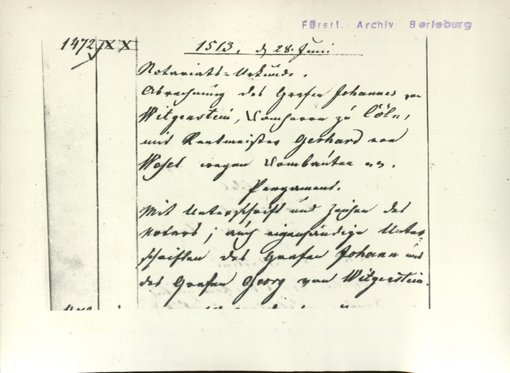 Fürstl. Archiv Berleburg
1472 XX
1513, d 28. Juni
Notariats-Urkunde.
Abrechnung des Grafen Johannes von
Witgenstein, Domherrn zu Cöln,
mit Rentmeister Gerhard von
Wesel wegen
Pergament.
Mit Unterschrift und Zeichen des
Notars; auch eigenhändige Unter
schriften des Grafen Johann und
des Grafen Georg von Witgenstein.